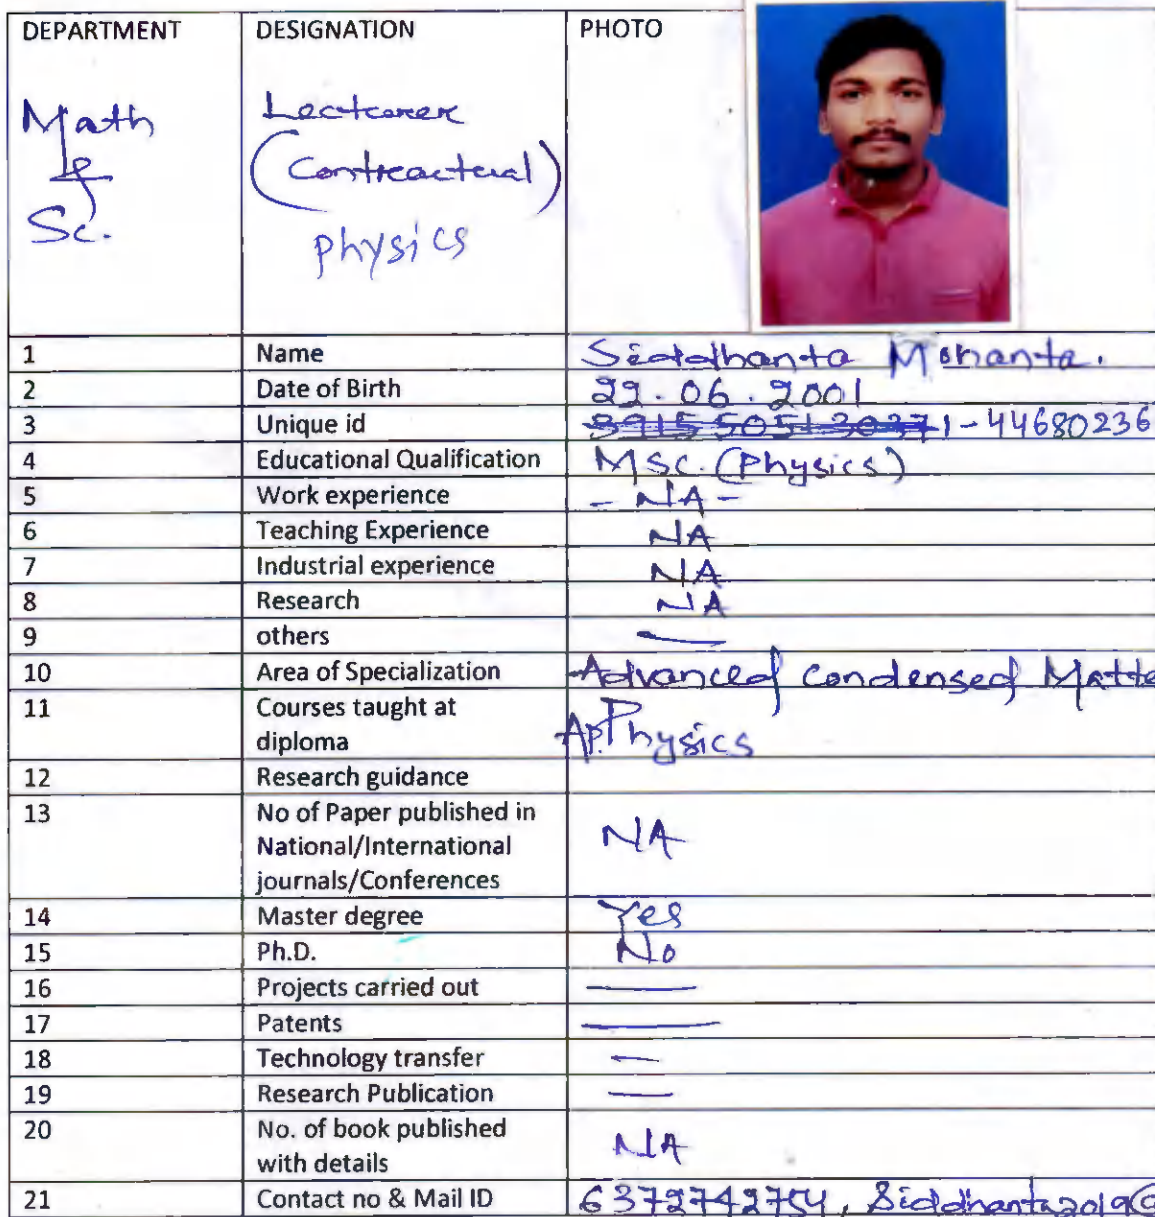 DEPARTMENT DESIGNATION PHOTO
Math Lecturer
& (Contractual)
Sc. physics
1 Name Siddhanta Mohanta.
2 Date of Birth 22.06.2001
3 Unique id 1-44680236
4 Educational Qualification MSC. (Physics)
5 Work experience - NA -
6 Teaching Experience NA
7 Industrial experience NA
8 Research NA
9 others —
10 Area of Specialization Advanced condensed Matte
11 Courses taught at
diploma Ap. Physics
12 Research guidance
13 No of Paper published in
National/International NA
journals/Conferences
14 Master degree Yes
15 Ph.D. No
16 Projects carried out —
17 Patents —
18 Technology transfer —
19 Research Publication —
20 No. of book published
with details NA
21 Contact no & Mail ID 6372742754, Siddhanta2019@